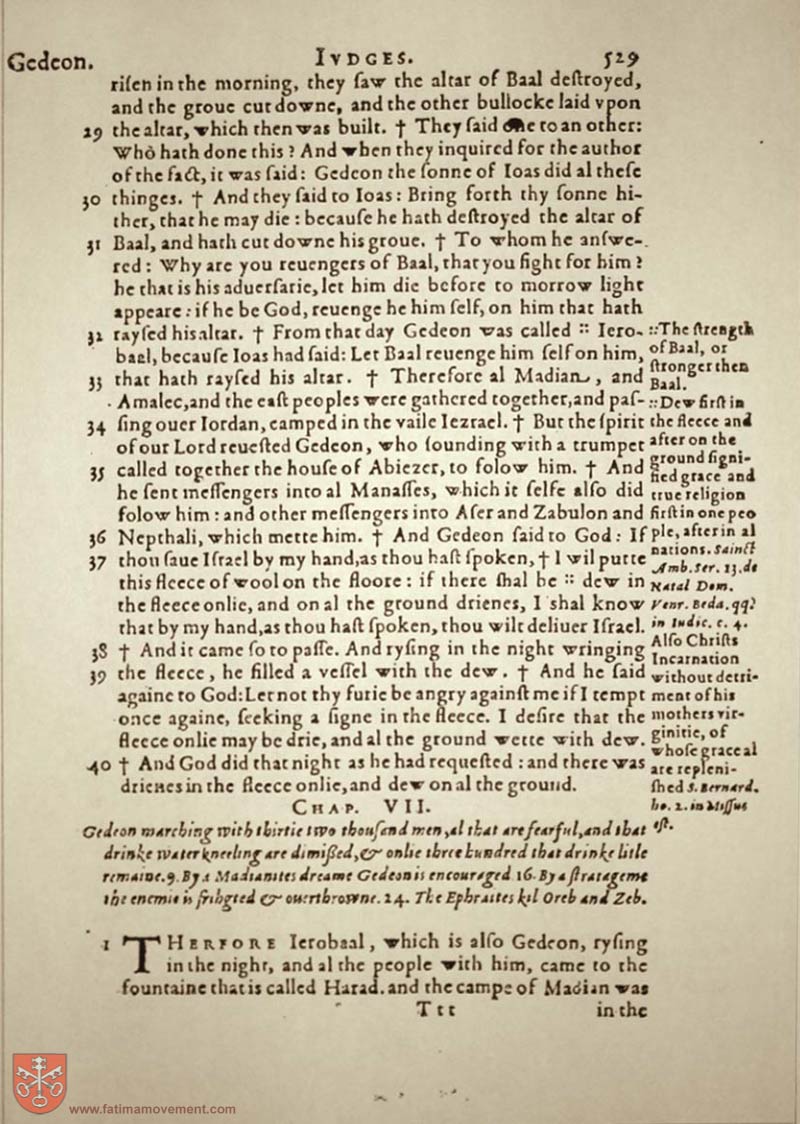 Gedeon.
IVDGES.
529
riſen in the morning, they ſaw the altar of Baal deſtroyed,
and the groue cut downe, and the other bullocke laid vpon
29 the altar, which then was built. † They ſaid one to an other:
Who hath done this? And when they inquired for the author
of the fact, it was ſaid: Gedeon the ſonne of Ioas did al theſe
30 thinges. † And they ſaid to Ioas: Bring forth thy ſonne hi-
ther, that he may die: becauſe he hath deſtroyed the altar of
31 Baal, and hath cut downe his groue. † To whom he anſwe-
red: Why are you reuengers of Baal, that you fight for him?
he that is his aduerſarie, let him die before to morrow light
appeare: if he be God, reuenge he him ſelf, on him that hath
32 rayſed his altar. † From that day Gedeon was called :: Iero-
baal, becauſe Ioas had ſaid: Let Baal reuenge him ſelf on him,
33 that hath rayſed his altar. † Therefore al Madian, and
Amalec, and the eaſt peoples were gathered together, and paſ-
34 ſing ouer Iordan, camped in the vaile Iezrael. † But the ſpirit
of our Lord reueſted Gedeon, who ſounding with a trumpet
35 called together the houſe of Abiezer, to folow him. † And
he ſent meſſengers into al Manaſſes, which it ſelfe alſo did
folow him: and other meſſengers into Aſer and Zabulon and
36 Nepthali, which mette him. † And Gedeon ſaid to God: If
37 thou ſaue Iſrael by my hand, as thou haſt ſpoken, † I wil putte
this fleece of wool on the floore: if there ſhal be :: dew in
the fleece onlie, and on al the ground drienes, I ſhal know
that by my hand, as thou haſt ſpoken, thou wilt deliuer Iſrael.
38 † And it came ſo to paſſe. And ryſing in the night wringing
39 the fleece, he filled a veſſel with the dew. † And he ſaid
againe to God: Let not thy furie be angry againſt me if I tempt
once againe, ſeeking a ſigne in the fleece. I deſire that the
fleece onlie may be drie, and al the ground wette with dew.
40 † And God did that night as he had requeſted: and there was
drienes in the fleece onlie, and dew on al the ground.
::The ſtrength
of Baal, or
ſtronger then
Baal.
::Dew firſt in
the fleece and
after on the
ground ſigni-
fied grace and
true religion
firſt in one peo
ple, after in al
nations. Sainct
Amb. ſer. 13. de
Natal Dom.
Venr. Beda. qq?
in Iudic. c. 4.
Alſo Chriſts
Incarnation
without detri-
ment of his
mothers vir-
ginitie, of
whoſe grace al
are repleni-
ſhed S. Bernard.
ho. 2. in Miſſus
eſt.
CHAP. VII.
Gedeon marching with thirtie two thouſand men, al that are fearful, and that
drinke water kneeling are dimiſſed, & onlie three hundred that drinke litle
remaine. 9. By a Madianites dreame Gedeon is encouraged 16. By a ſtratageme
the enemie is frihgted & ouerthrowne. 24. The Ephraites kil Oreb and Zeb.
1 THERFORE Ierobaal, which is alſo Gedeon, ryſing
in the night, and al the people with him, came to the
fountaine that is called Harad. and the campe of Madian was
Ttt
in the
www.fatimamovement.com